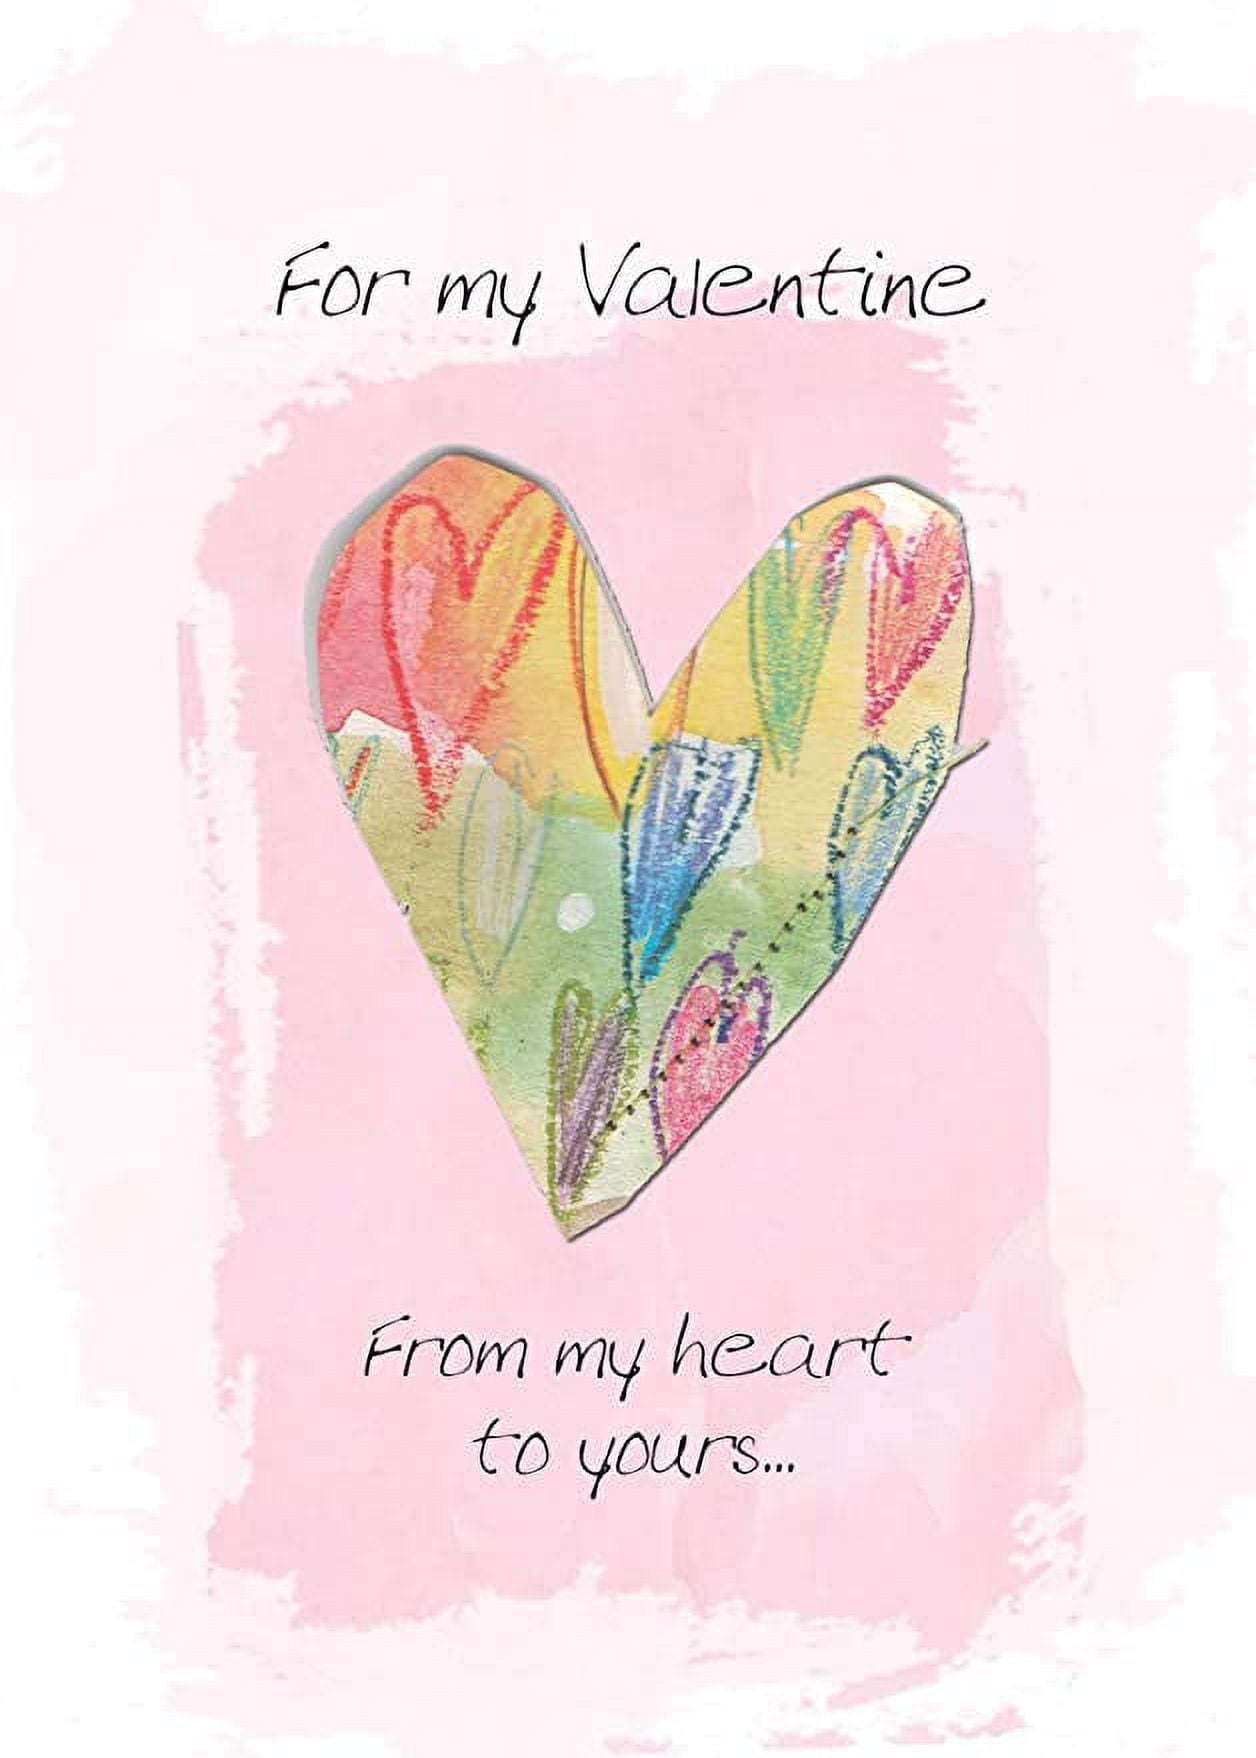 For my Valentine
From my heart
to yours...